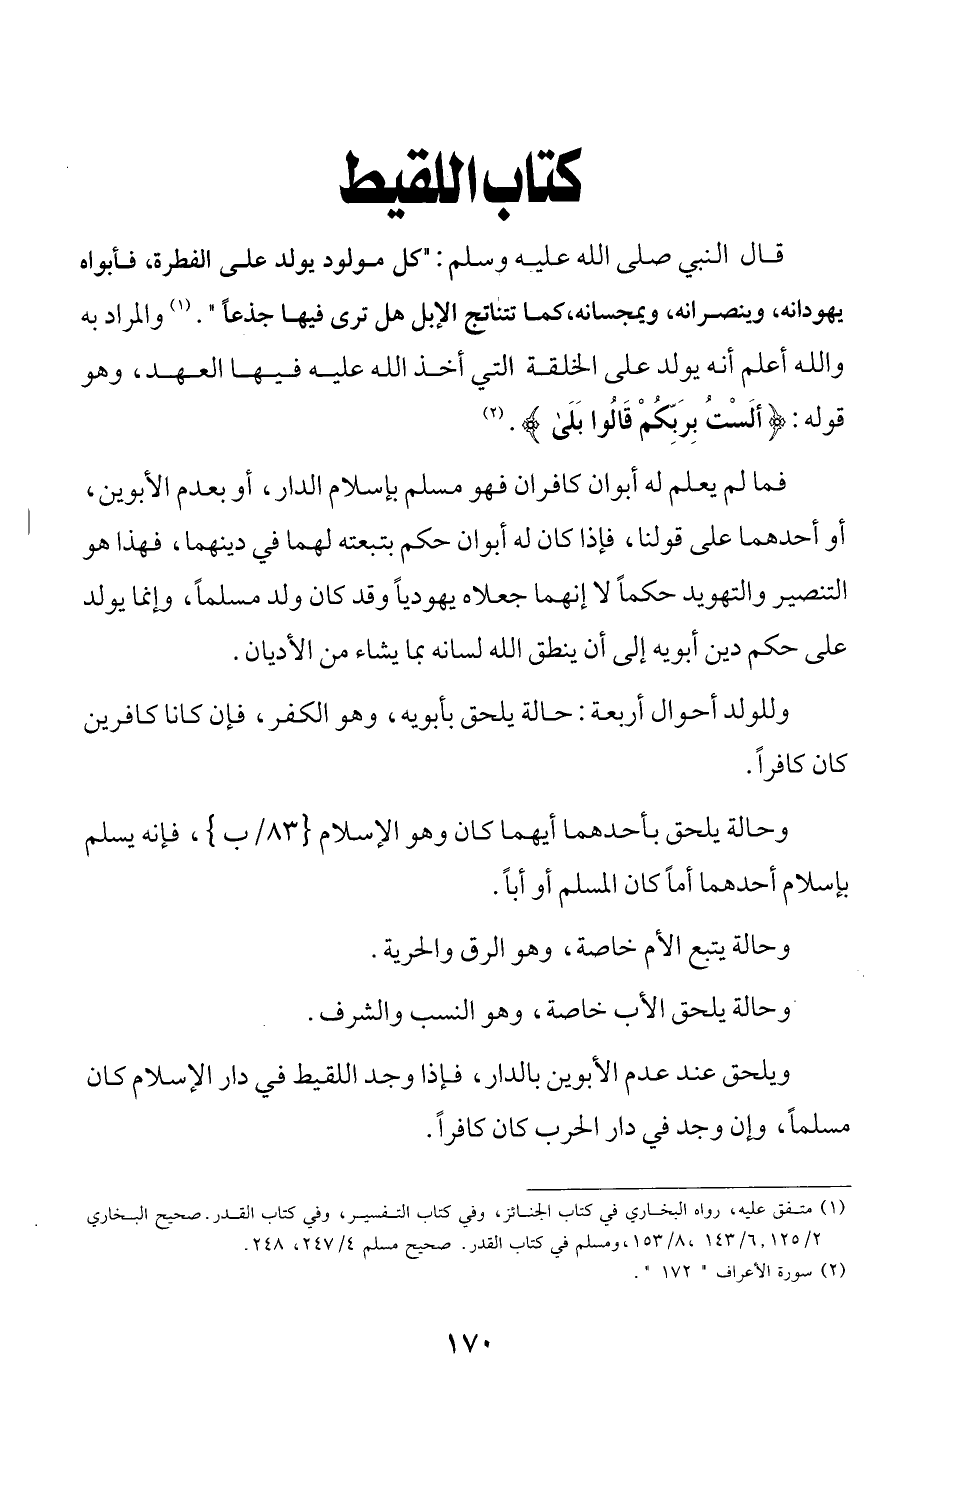 كتاب اللقيط
قال النبي صلى الله عليه وسلم: "كل مولود يولد على الفطرة، فأبواه
يهودانه، وينصرانه، ويمجسانه، كما تتناتج الإبل هل ترى فيها جذعاً". (١) والمراد به
والله أعلم أنه يولد على الخلقة التي أخذ الله عليه فيها العهد، وهو
قوله: ﴿ أَلَسْتُ بِرَبِّكُمْ قَالُوا بَلَىٰ ﴾. (٢)
فما لم يعلم له أبوان كافران فهو مسلم بإسلام الدار، أو بعدم الأبوين،
أو أحدهما على قولنا، فإذا كان له أبوان حكم بتبعته لهما في دينهما، فهذا هو
التنصير والتهويد حكماً لا إنهما جعلاه يهودياً وقد كان ولد مسلماً، وإنما يولد
على حكم دين أبويه إلى أن ينطق الله لسانه بما يشاء من الأديان.
وللولد أحوال أربعة: حالة يلحق بأبويه، وهو الكفر، فإن كانا كافرين
كان كافراً.
وحالة يلحق بأحدهما أيهما كان وهو الإسلام {٨٣/ ب}، فإنه يسلم
بإسلام أحدهما أماً كان المسلم أو أباً.
وحالة يتبع الأم خاصة، وهو الرق والحرية.
وحالة يلحق الأب خاصة، وهو النسب والشرف.
ويلحق عند عدم الأبوين بالدار، فإذا وجد اللقيط في دار الإسلام كان
مسلماً، وإن وجد في دار الحرب كان كافراً.
(١) متفق عليه، رواه البخاري في كتاب الجنائز، وفي كتاب التفسير، وفي كتاب القدر. صحيح البخاري
٢/ ١٢٥, ٦/ ١٤٣، ٨/ ١٥٣، ومسلم في كتاب القدر. صحيح مسلم ٤/ ٢٤٧، ٢٤٨.
(٢) سورة الأعراف " ١٧٢ ".
١٧٠